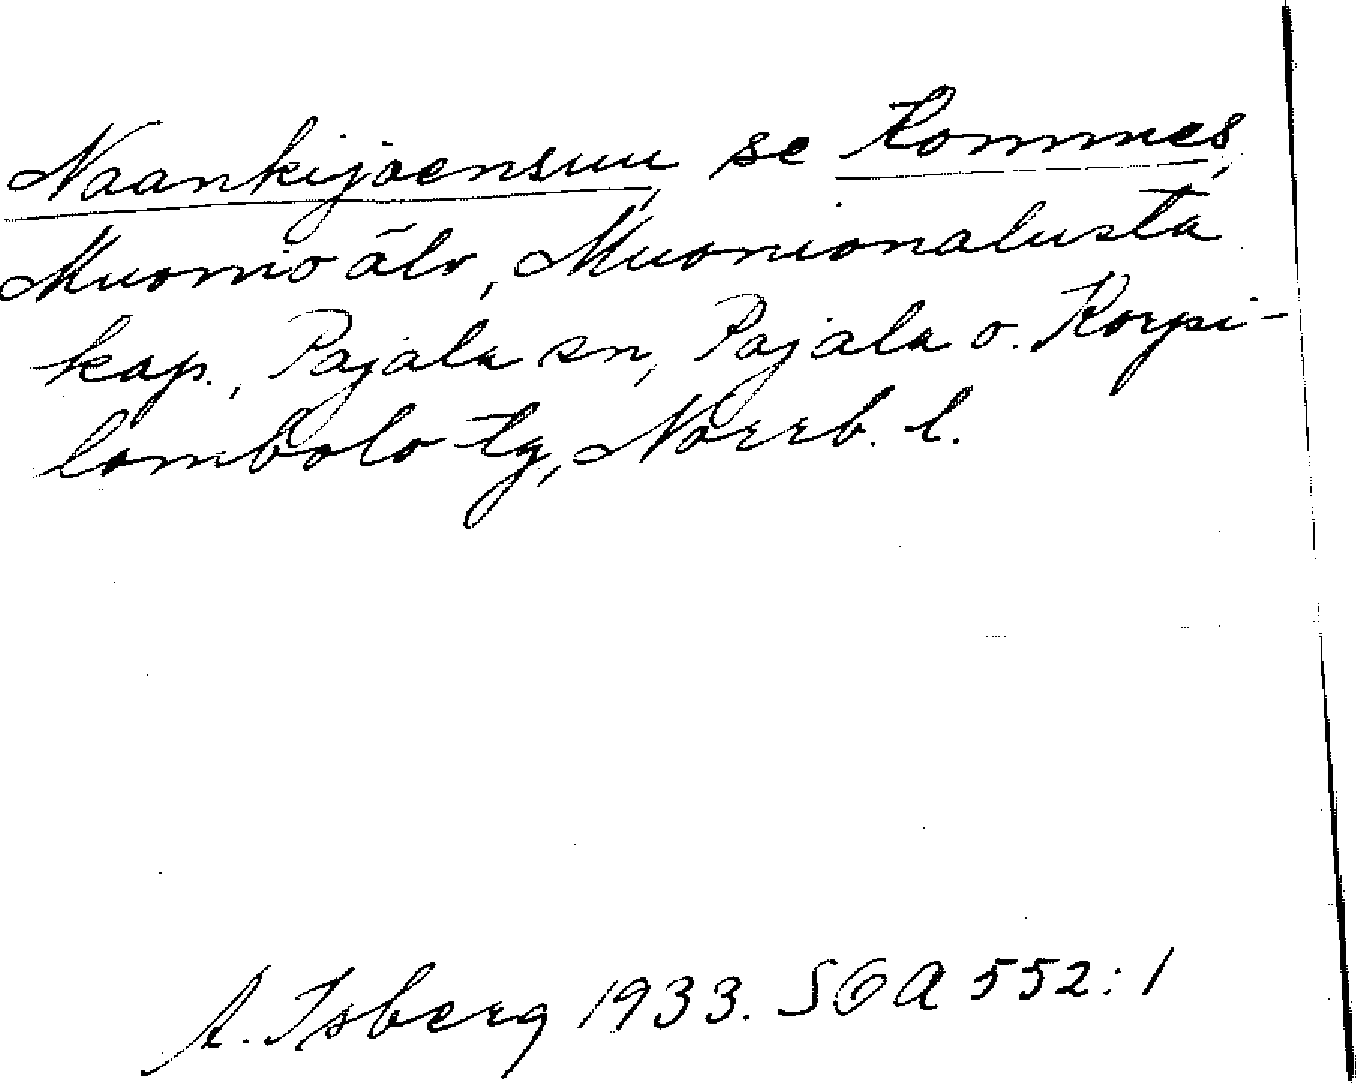 Naankijoensuu, se Kommes,
Muonio älv, Muonionalusta
kap., Pajala sn, Pajala o. Korpi-
lombolo tg, Norrb. l.
A. Isberg 1933. SOA 552:1